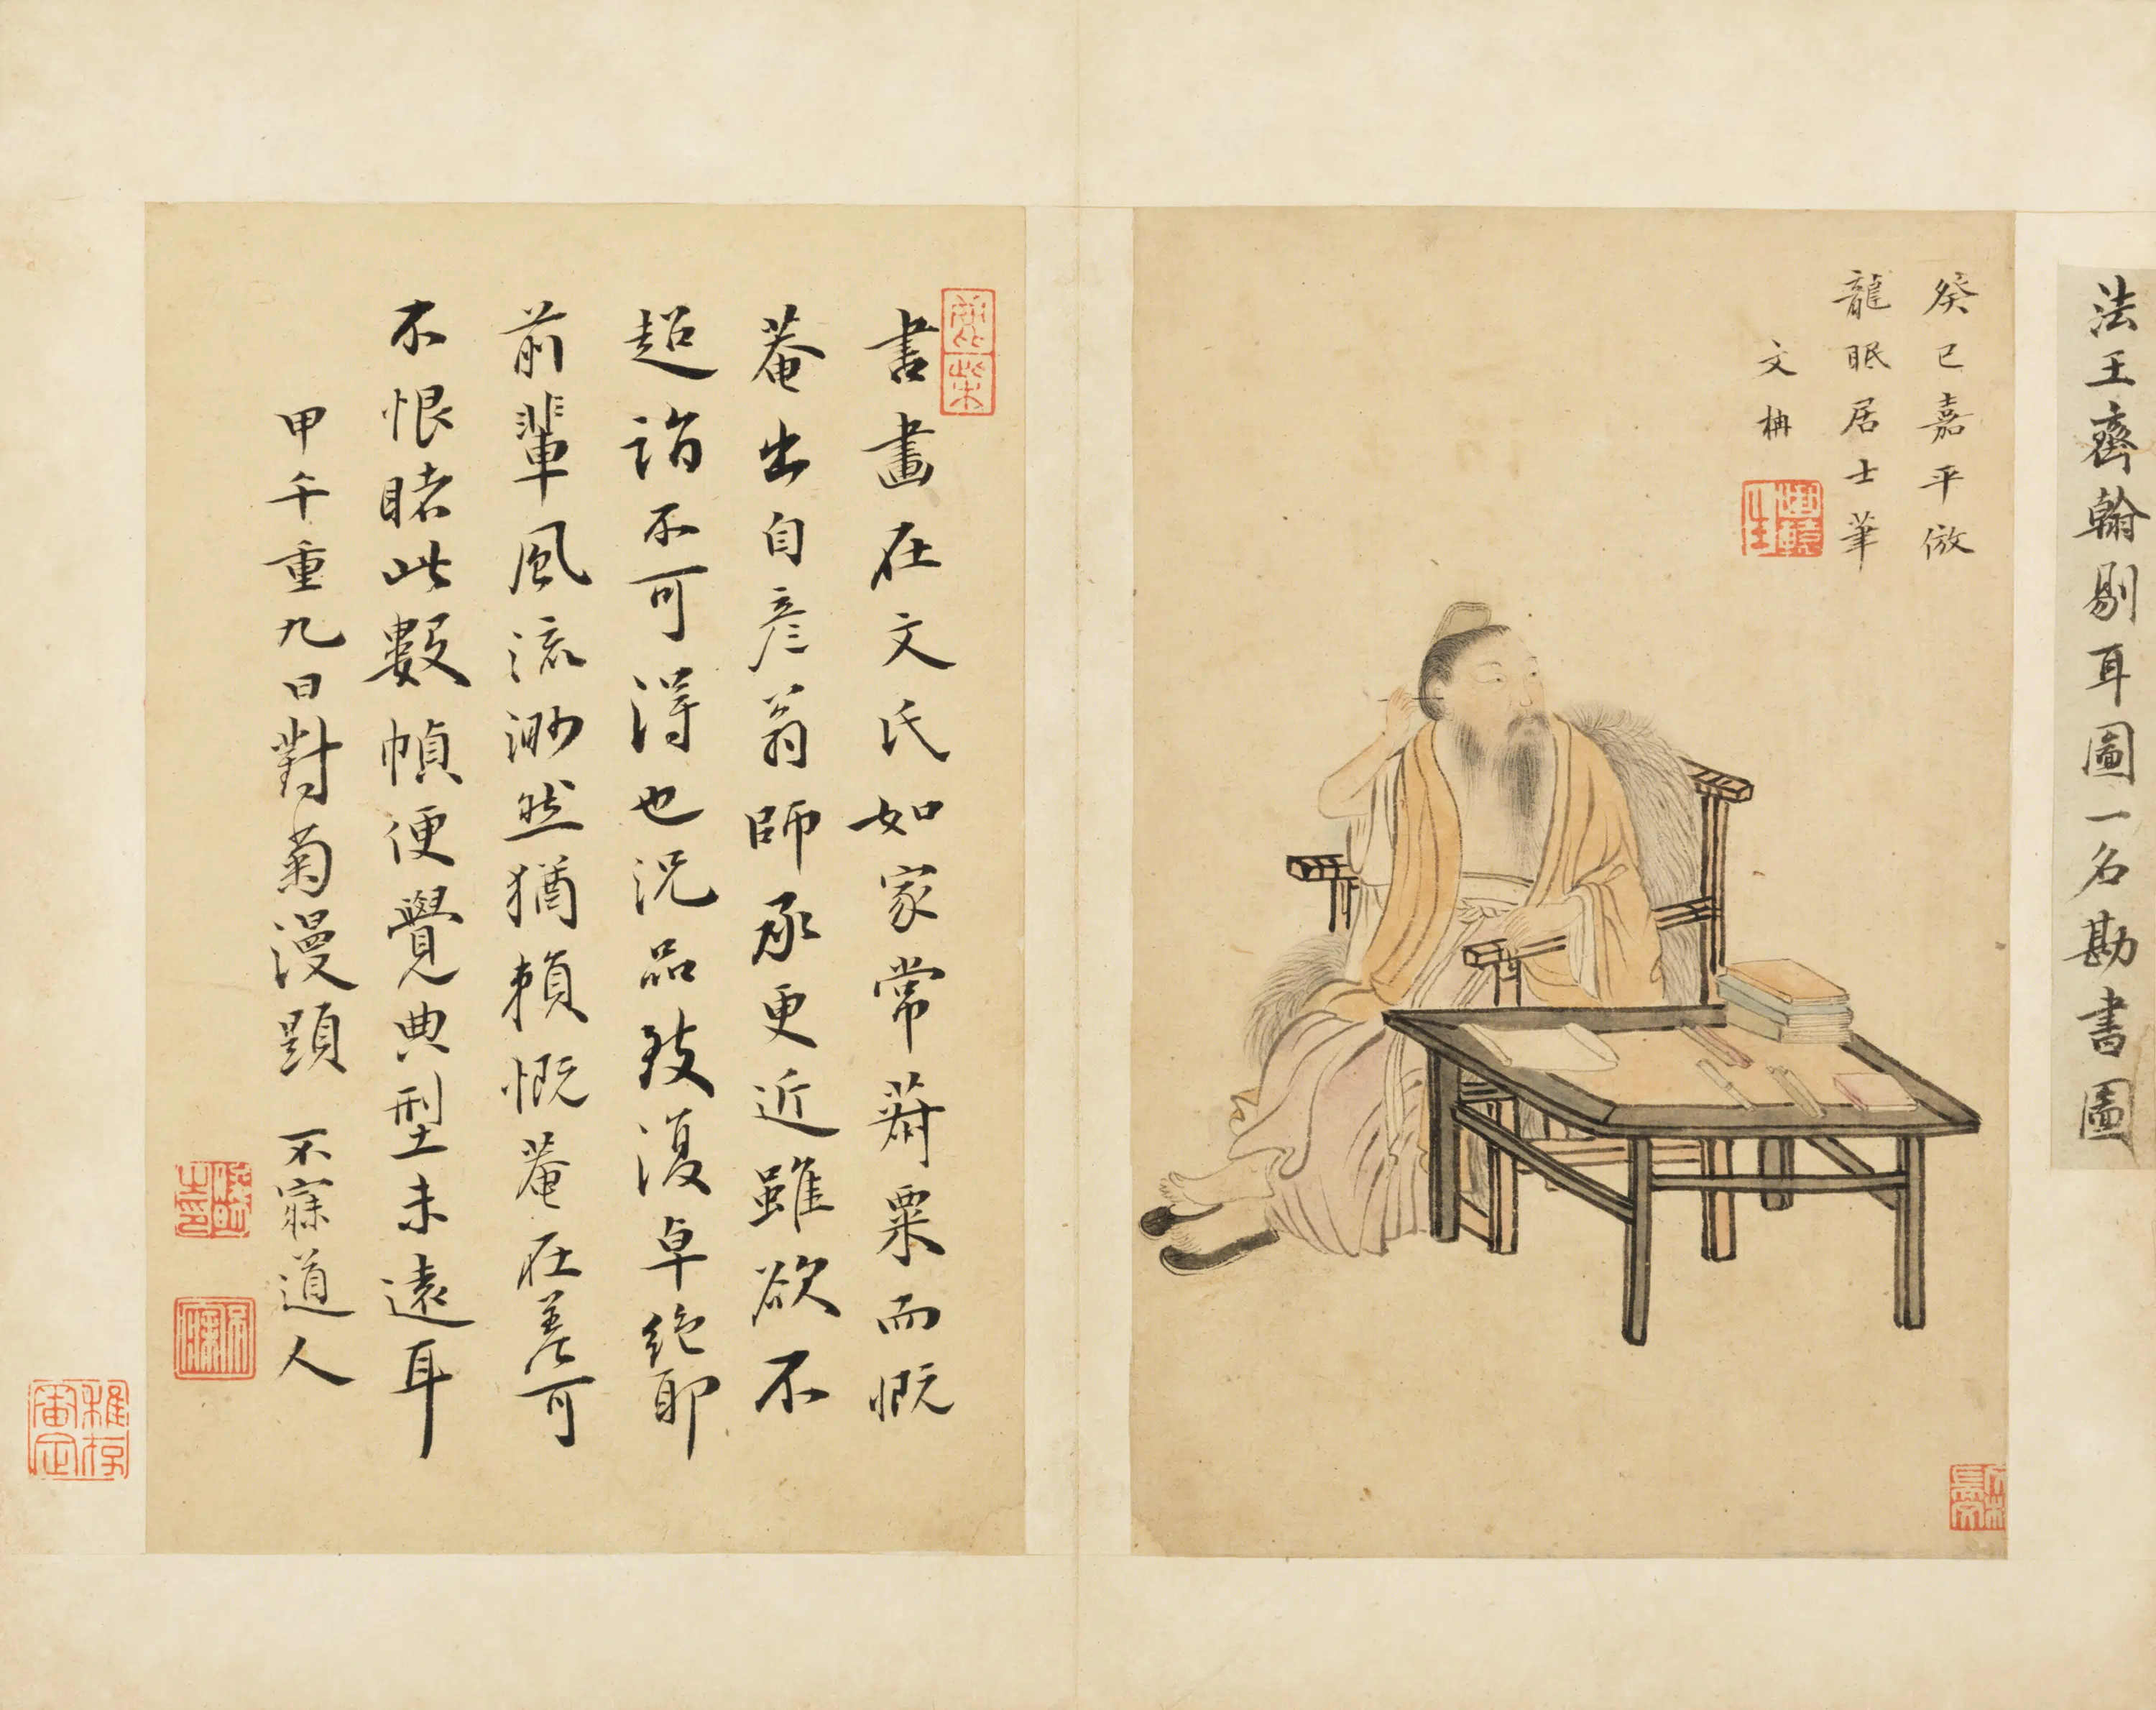 法王齊翰剔耳圖一名勘書圖
癸巳嘉平倣
龍眠居士筆
文柟
書畫在文氏如家常菽粟而慨
菴出自彦翁師承更近雖欲不
超詣不可得也況品致復卓絶耶
前輩風流渺然猶賴慨菴在差可
不恨睹此數幀便覺典型未遠耳
甲午重九日對菊漫題 不寐道人